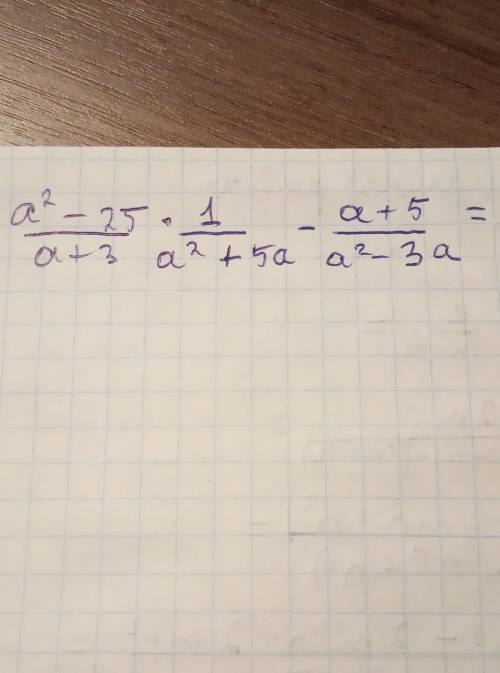 a² - 25 / a + 3 · 1 / a² + 5a - a + 5 / a² - 3a =